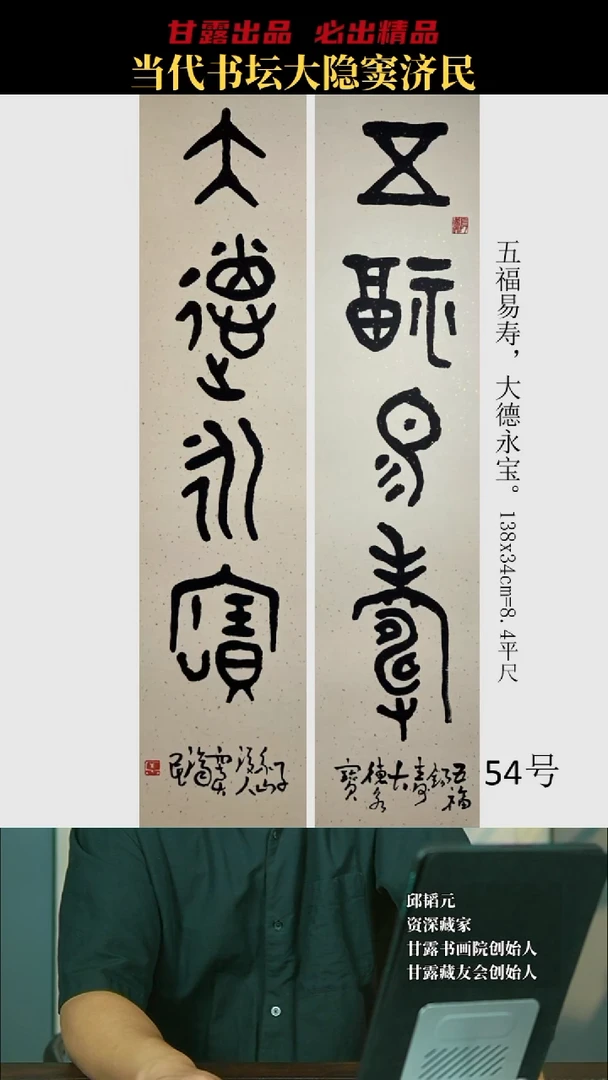 甘露出品 必出精品
当代书坛大隐窦济民
五福易寿
大德永宝
五福易寿，大德永宝。138x34cm=8.4平尺
54号
邱韬元
资深藏家
甘露书画院创始人
甘露藏友会创始人